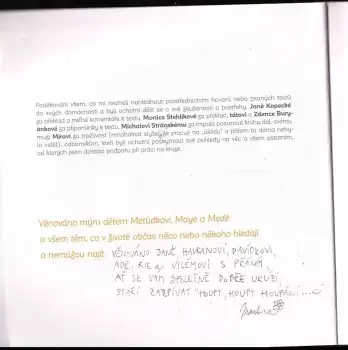 Poděkování všem, co mi nechali nahlédnout prostřednictvím hovorů nebo psaných textů
do svých domácností a byli ochotni dělit se o své zkušenosti a postřehy. Janě Kopecké
za překlad a trefné komentáře k textu, Monice Stehlíkové za překlad, tátovi a Zdence Bury-
ánkové za připomínky k textu, Michalovi Stránskému za impuls posunout knihu dál, svému
muži Mirovi za trpělivost (mnohokrát slyšel, že pracuji na „úklidu“ a přitom to doma neby-
lo vidět), odborníkům, kteří byli ochotni poskytnout své pohledy na věc a všem ostatním,
od kterých jsem dostala podporu při práci na knize.
Věnováno mým dětem Metůdkovi, Maye a Medě
a všem těm, co v životě občas něco nebo někoho hledají
a nemůžou najít
VĚNOVÁNO JANĚ, HAVRANOVI, DAVÍDKOVI,
ADĚ, RIE a VILÉMOVI S PŘÁNÍM
AŤ SE VÁM SPOLEČNĚ DOBŘE UKLÍZÍ,
STAČÍ ZAZPÍVAT "HOUPY, HOUPY HOUPÁNÍ...